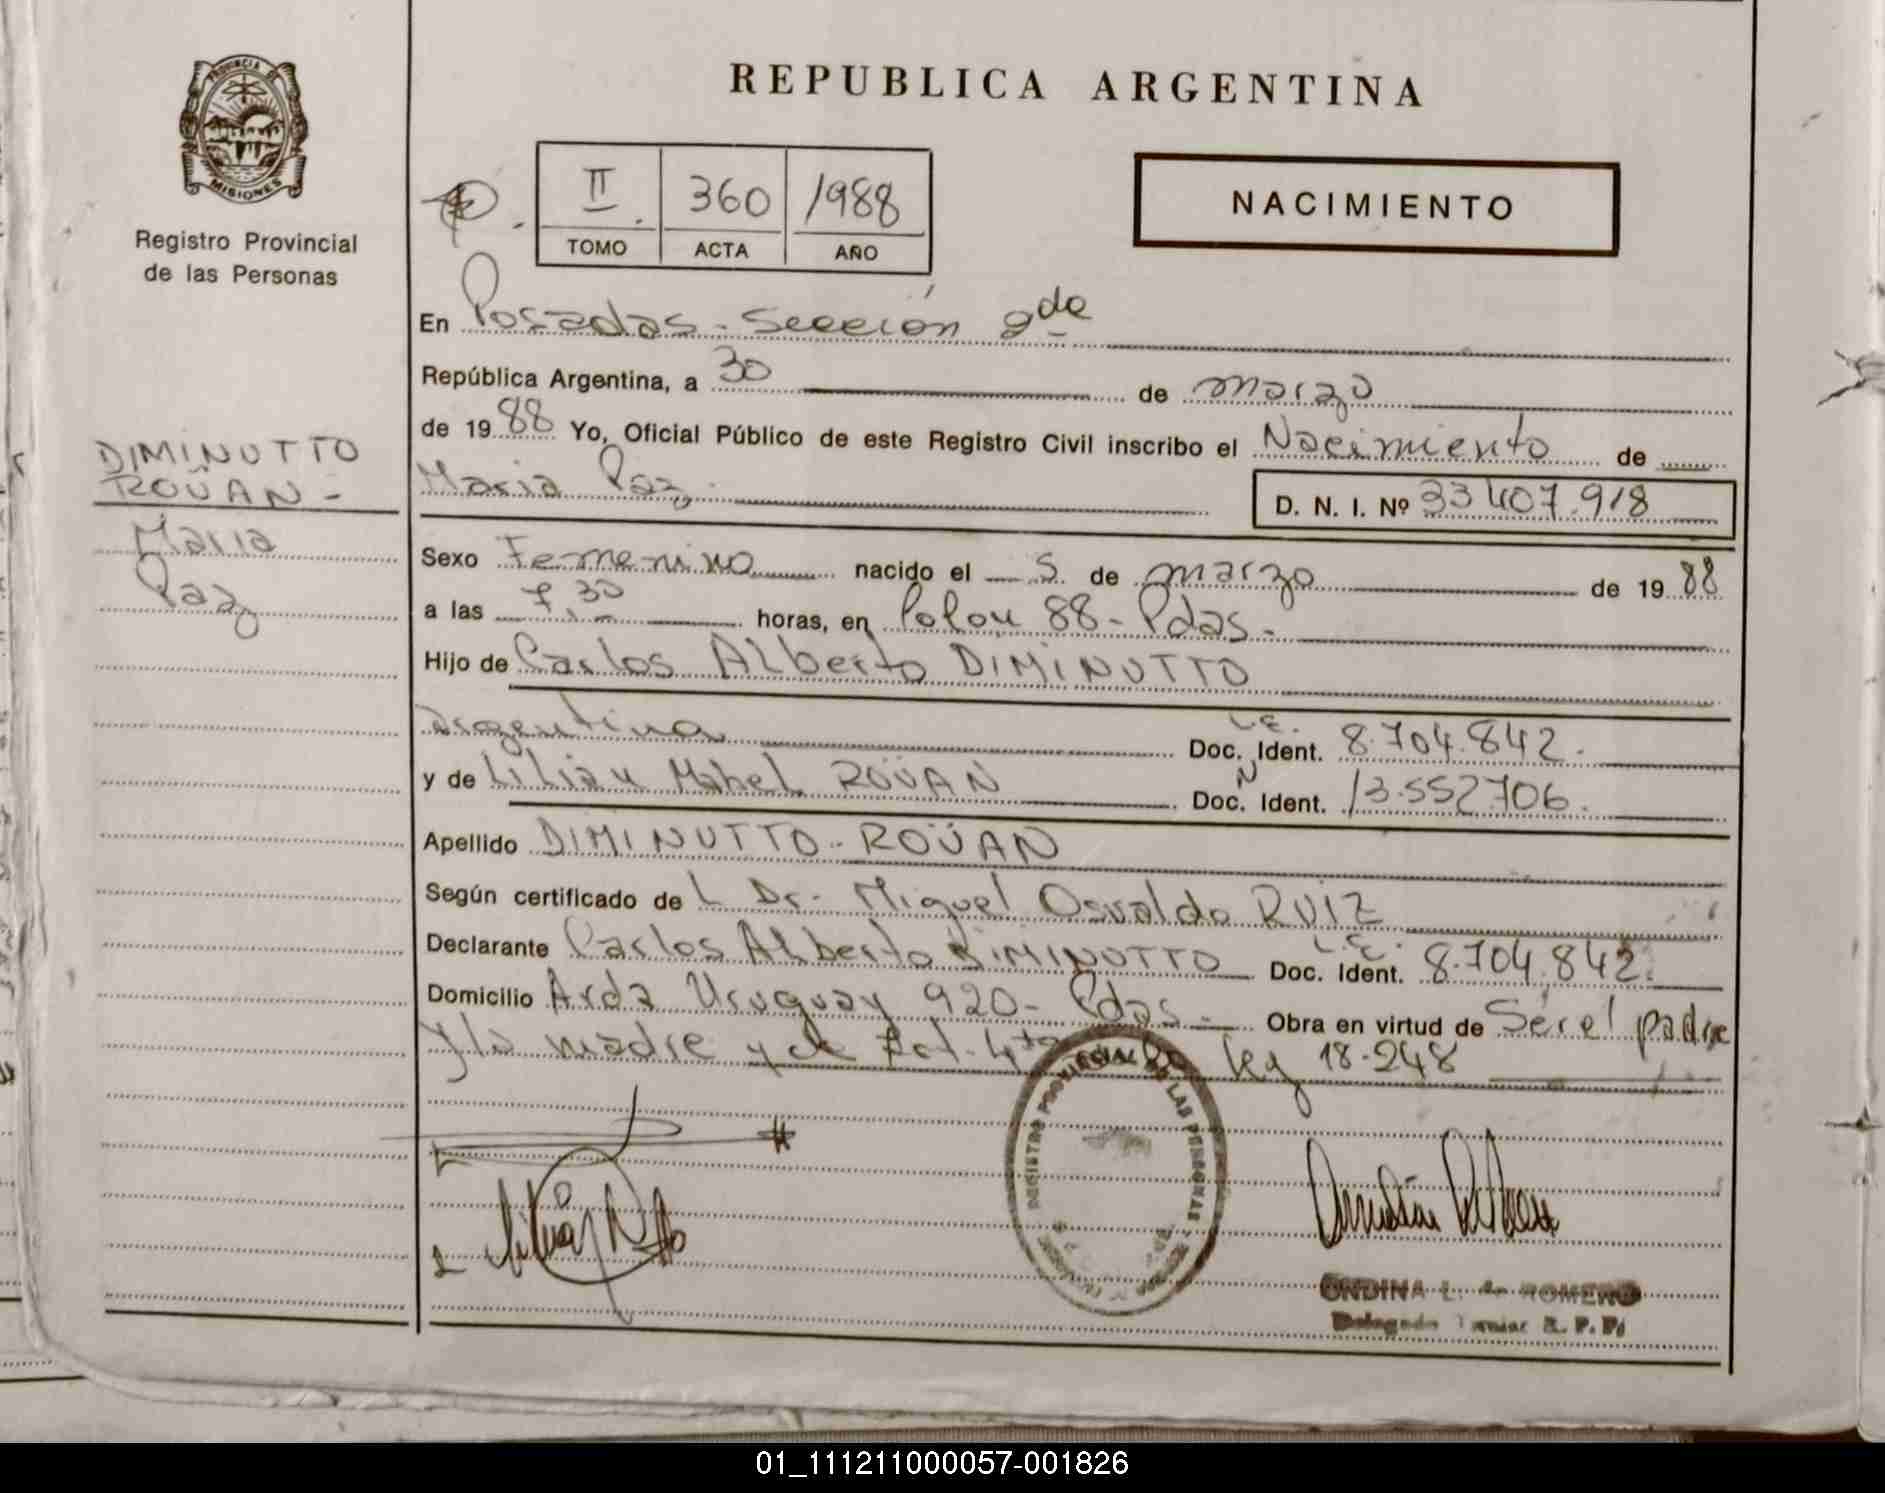 PROVINCIA DE
MISIONES
Registro Provincial
de las Personas
DIMINUTTO
ROÜAN -
Maria
Paz
REPUBLICA ARGENTINA
II. 360 1988
TOMO ACTA AÑO
NACIMIENTO
En Posadas - Sección 2da
República Argentina, a 30 de marzo
de 1988 Yo, Oficial Público de este Registro Civil inscribo el Nacimiento de
Maria Paz
D. N. I. Nº 33.407.918
Sexo Femenino nacido el 5 de marzo de 1988
a las 7,30 horas, en Colón 88 - Pdas.
Hijo de Carlos Alberto DIMINUTTO
Argentina L.E. Doc. Ident. 8.704.842.
y de Lilian Mabel ROÜAN Doc. Ident. 13.552706.
Apellido DIMINUTTO - ROÜAN
Según certificado de L Dr. Miguel Osvaldo RUIZ
Declarante Carlos Alberto DIMINUTTO L.E. Doc. Ident. 8.704.842.
Domicilio Avda Uruguay 920 - Pdas. Obra en virtud de Ser el padre
y la madre y de 4to Ley 18.248
REGISTRO PROVINCIAL DE LAS PERSONAS
ONDINA L. de ROMERO
Delegado R. P. P.
01_111211000057-001826